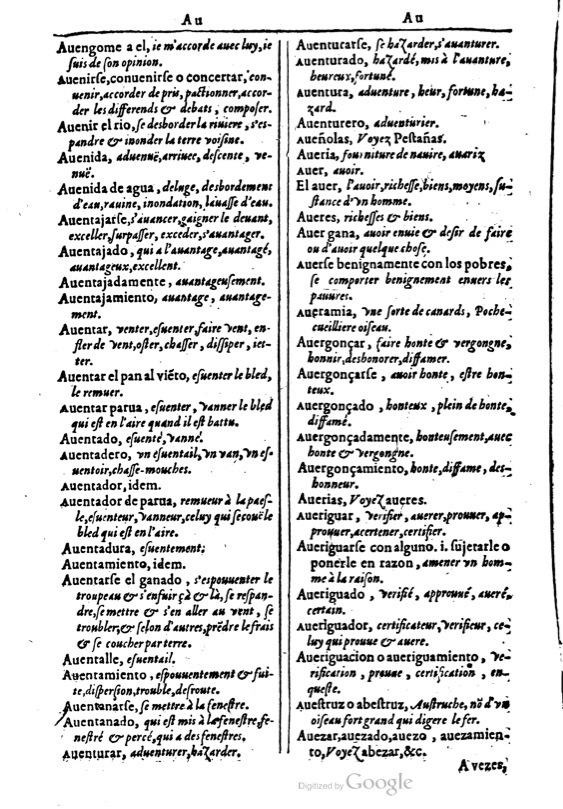 Au
Auengome a el, ie m'accorde auec luy, ie
suis de son opinion.
Auenirse, conuenirse o concertar, con-
uenir, accorder de pris, pactionner, accor-
der les differends & debats, composer.
Auenir el rio, se desborder la riuiere, s'es-
pandre & inonder la terre voisine.
Auenida, aduenuë, arriuee, descente, ve-
nuë.
Auenida de agua, deluge, desbordement
d'eau, rauine, inondation, lauasse d'eau.
Auentajarse, s'auancer, gaigner le deuant,
exceller, surpasser, exceder, s'auantager.
Auentajado, qui a l'auantage, auantagé,
auantageux, excellent.
Auentajadamente, auantageusement.
Auentajamiento, auantage, auantage-
ment.
Auentar, venter, esuenter, faire vent, en-
fler de vent, oster, chasser, dissiper, iet-
ter.
Auentar el pan al viẽto, esuenter le bled,
le remuer.
Auentar parua, esuenter, vanner le bled
qui est en l'aire quand il est battu.
Auentado, esuenté, vanné.
Auentadero, vn esuentail, vn van, vn es-
uentoir, chasse-mouches.
Auentador, idem.
Auentador de parua, remueur à la paes-
le, esuenteur, vanneur, celuy qui secouë le
bled qui est en l'aire.
Auentadura, esuentement;
Auentamiento, idem.
Auentarse el ganado, s'espouuenter le
troupeau & s'enfuir çà & là, se respan-
dre, se mettre & s'en aller au vent, se
troubler, & selon d'autres, prẽdre le frais
& se coucher par terre.
Auentalle, esuentail.
Auentamiento, espouuentement & fui-
te, dispersion, trouble, desroute.
Auentanarse, se mettre à la fenestre.
Auentanado, qui est mis à la fenestre, fe-
nestré & percé, qui a des fenestres.
Auenturar, aduenturer, hazarder.
Au
Auenturarse, se hazarder, s'auanturer.
Auenturado, hazardé, mis à l'auanture,
heureux, fortuné.
Auentura, aduenture, heur, fortune, ha-
zard.
Auenturero, aduenturier.
Aueñolas, Voyez Pestañas.
Aueria, fourniture de nauire, auariz
Auer, auoir.
El auer, l'auoir, richesse, biens, moyens, su-
stance d'vn homme.
Aueres, richesses & biens.
Auer gana, auoir enuie & desir de faire
ou d'auoir quelque chose.
Auerse benignamente con los pobres,
se comporter benignement enuers les
pauures.
Aueramia, vne sorte de canards, Poche-
cueilliere oiseau.
Auergonçar, faire honte & vergongne,
honnir, deshonorer, diffamer.
Auergonçarse, auoir honte, estre hon-
teux.
Auergonçado, honteux, plein de honte,
diffamé.
Auergonçadamente, honteusement, auec
honte & vergongne.
Auergonçamiento, honte, diffame, des-
honneur.
Auerias, Voyez aueres.
Aueriguar, verifier, auerer, prouuer, ap-
prouuer, acertener, certifier.
Aueriguarse con alguno. i. sujetarle o
ponerle en razon, amener vn hom-
me à la raison.
Aueriguado, verifié, approuué, aueré,
certain.
Aueriguador, certificateur, verifieur, ce-
luy qui prouue & auere.
Aueriguacion o aueriguamiento, ve-
rification, preuue, certification, en-
queste.
Auestruz o abestruz, Austruche, nõ d'vn
oiseau fort grand qui digere le fer.
Auezar, auezado, auezo, auezamien-
to, Voyez abezar, &c.
A vezes,
Digitized by Google